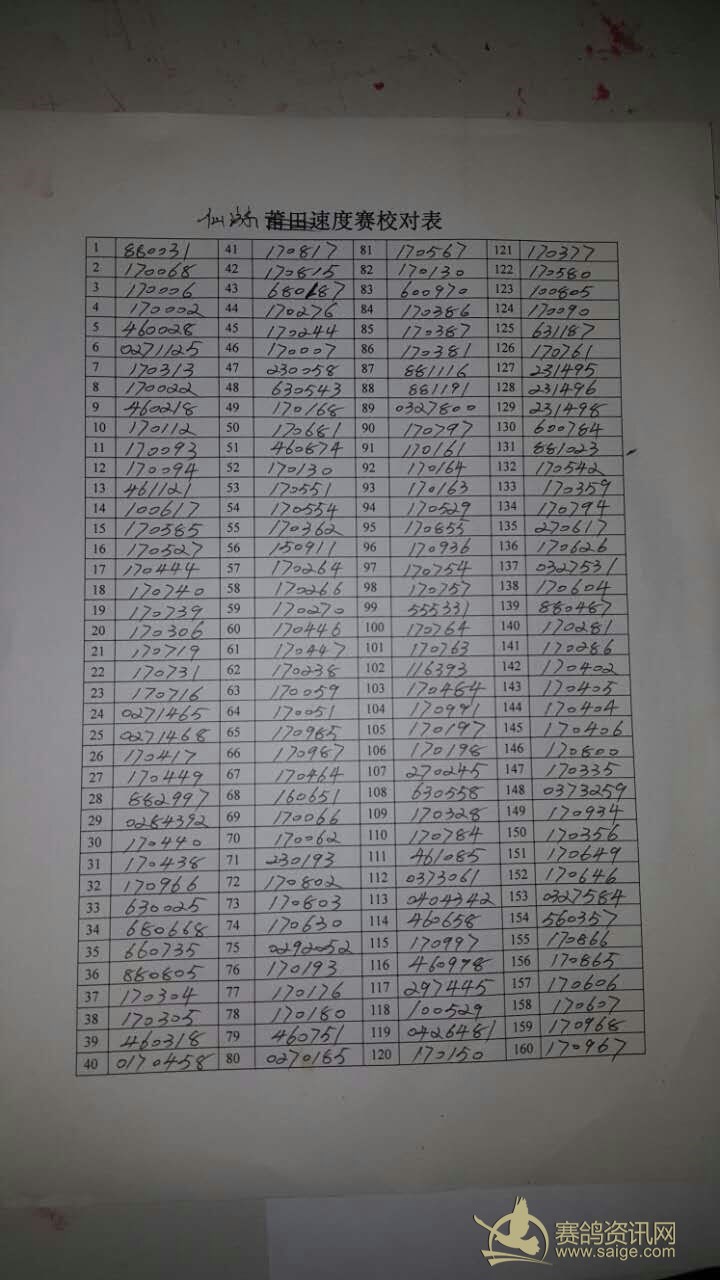 仙游 莆田速度赛校对表
1 880031 41 170817 81 170567 121 170377
2 170068 42 170815 82 170130 122 170580
3 170006 43 680187 83 600970 123 100805
4 170002 44 170276 84 170386 124 170090
5 460028 45 170244 85 170387 125 631187
6 0271125 46 170007 86 170381 126 170761
7 170313 47 230058 87 881116 127 231495
8 170022 48 630543 88 881191 128 231496
9 460218 49 170168 89 0327800 129 231498
10 170112 50 170681 90 170797 130 600784
11 170093 51 460874 91 170161 131 881023
12 170094 52 170130 92 170164 132 170542
13 461121 53 170551 93 170163 133 170359
14 100617 54 170554 94 170529 134 170794
15 170585 55 170362 95 170855 135 270617
16 170527 56 150911 96 170936 136 170626
17 170444 57 170264 97 170754 137 0327531
18 170740 58 170266 98 170757 138 170604
19 170739 59 170270 99 555331 139 880487
20 170306 60 170446 100 170764 140 170281
21 170719 61 170447 101 170763 141 170286
22 170731 62 170238 102 116393 142 170402
23 170716 63 170059 103 170484 143 170405
24 0271465 64 170051 104 170991 144 170404
25 0271468 65 170985 105 170197 145 170406
26 170417 66 170987 106 170198 146 170800
27 170449 67 170464 107 270245 147 170335
28 882997 68 160651 108 630558 148 0373259
29 0284392 69 170066 109 170328 149 170934
30 170440 70 170062 110 170784 150 170356
31 170438 71 230193 111 461085 151 170649
32 170966 72 170802 112 0373061 152 170646
33 630025 73 170803 113 0404342 153 0327584
34 680668 74 170630 114 460658 154 560357
35 660735 75 0292052 115 170997 155 170866
36 880805 76 170193 116 460978 156 170865
37 170304 77 170176 117 297445 157 170606
38 170305 78 170180 118 100529 158 170607
39 460318 79 460751 119 0426481 159 170968
40 0170458 80 0270185 120 170150 160 170967
赛鸽资讯网
www.saige.com